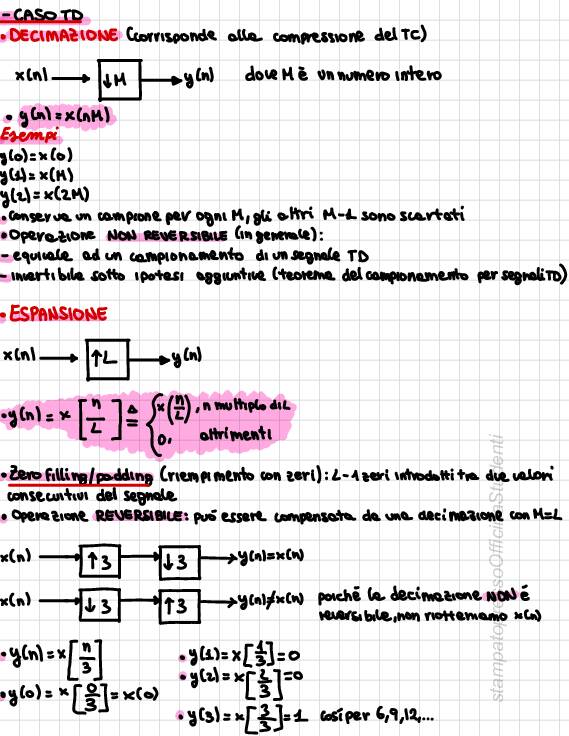 - CASO TD
• DECIMAZIONE (corrisponde alla compressione del TC)
x(n) → ↓M → y(n) dove M è un numero intero
• y(n) = x(nM)
Esempi
y(0)=x(0)
y(1)=x(M)
y(2)=x(2M)
• conserva un campione per ogni M, gli altri M-1 sono scartati
• Operazione NON REVERSIBILE (in generale):
- equivale ad un campionamento di un segnale TD
- invertibile sotto ipotesi aggiuntive (teorema del campionamento per segnali TD)
• ESPANSIONE
x(n) → ↑L → y(n)
• y(n) = x [n/L] ≜ { x(n/L), n multiplo di L
0, altrimenti
• Zero filling/padding (riempimento con zeri): L-1 zeri introdotti tra due valori
consecutivi del segnale
• Operazione REVERSIBILE: può essere compensata da una decimazione con M=L
x(n) → ↑3 → ↓3 → y(n)=x(n)
x(n) → ↓3 → ↑3 → y(n)≠x(n) poiché la decimazione NON é
reversibile, non riotteniamo x(n)
• y(n) = x[n/3]
• y(0) = x[0/3] = x(0)
• y(1) = x[1/3] = 0
• y(2) = x[2/3] = 0
• y(3) = x[3/3] = 1 così per 6,9,12,...
stampato presso Officina Studenti